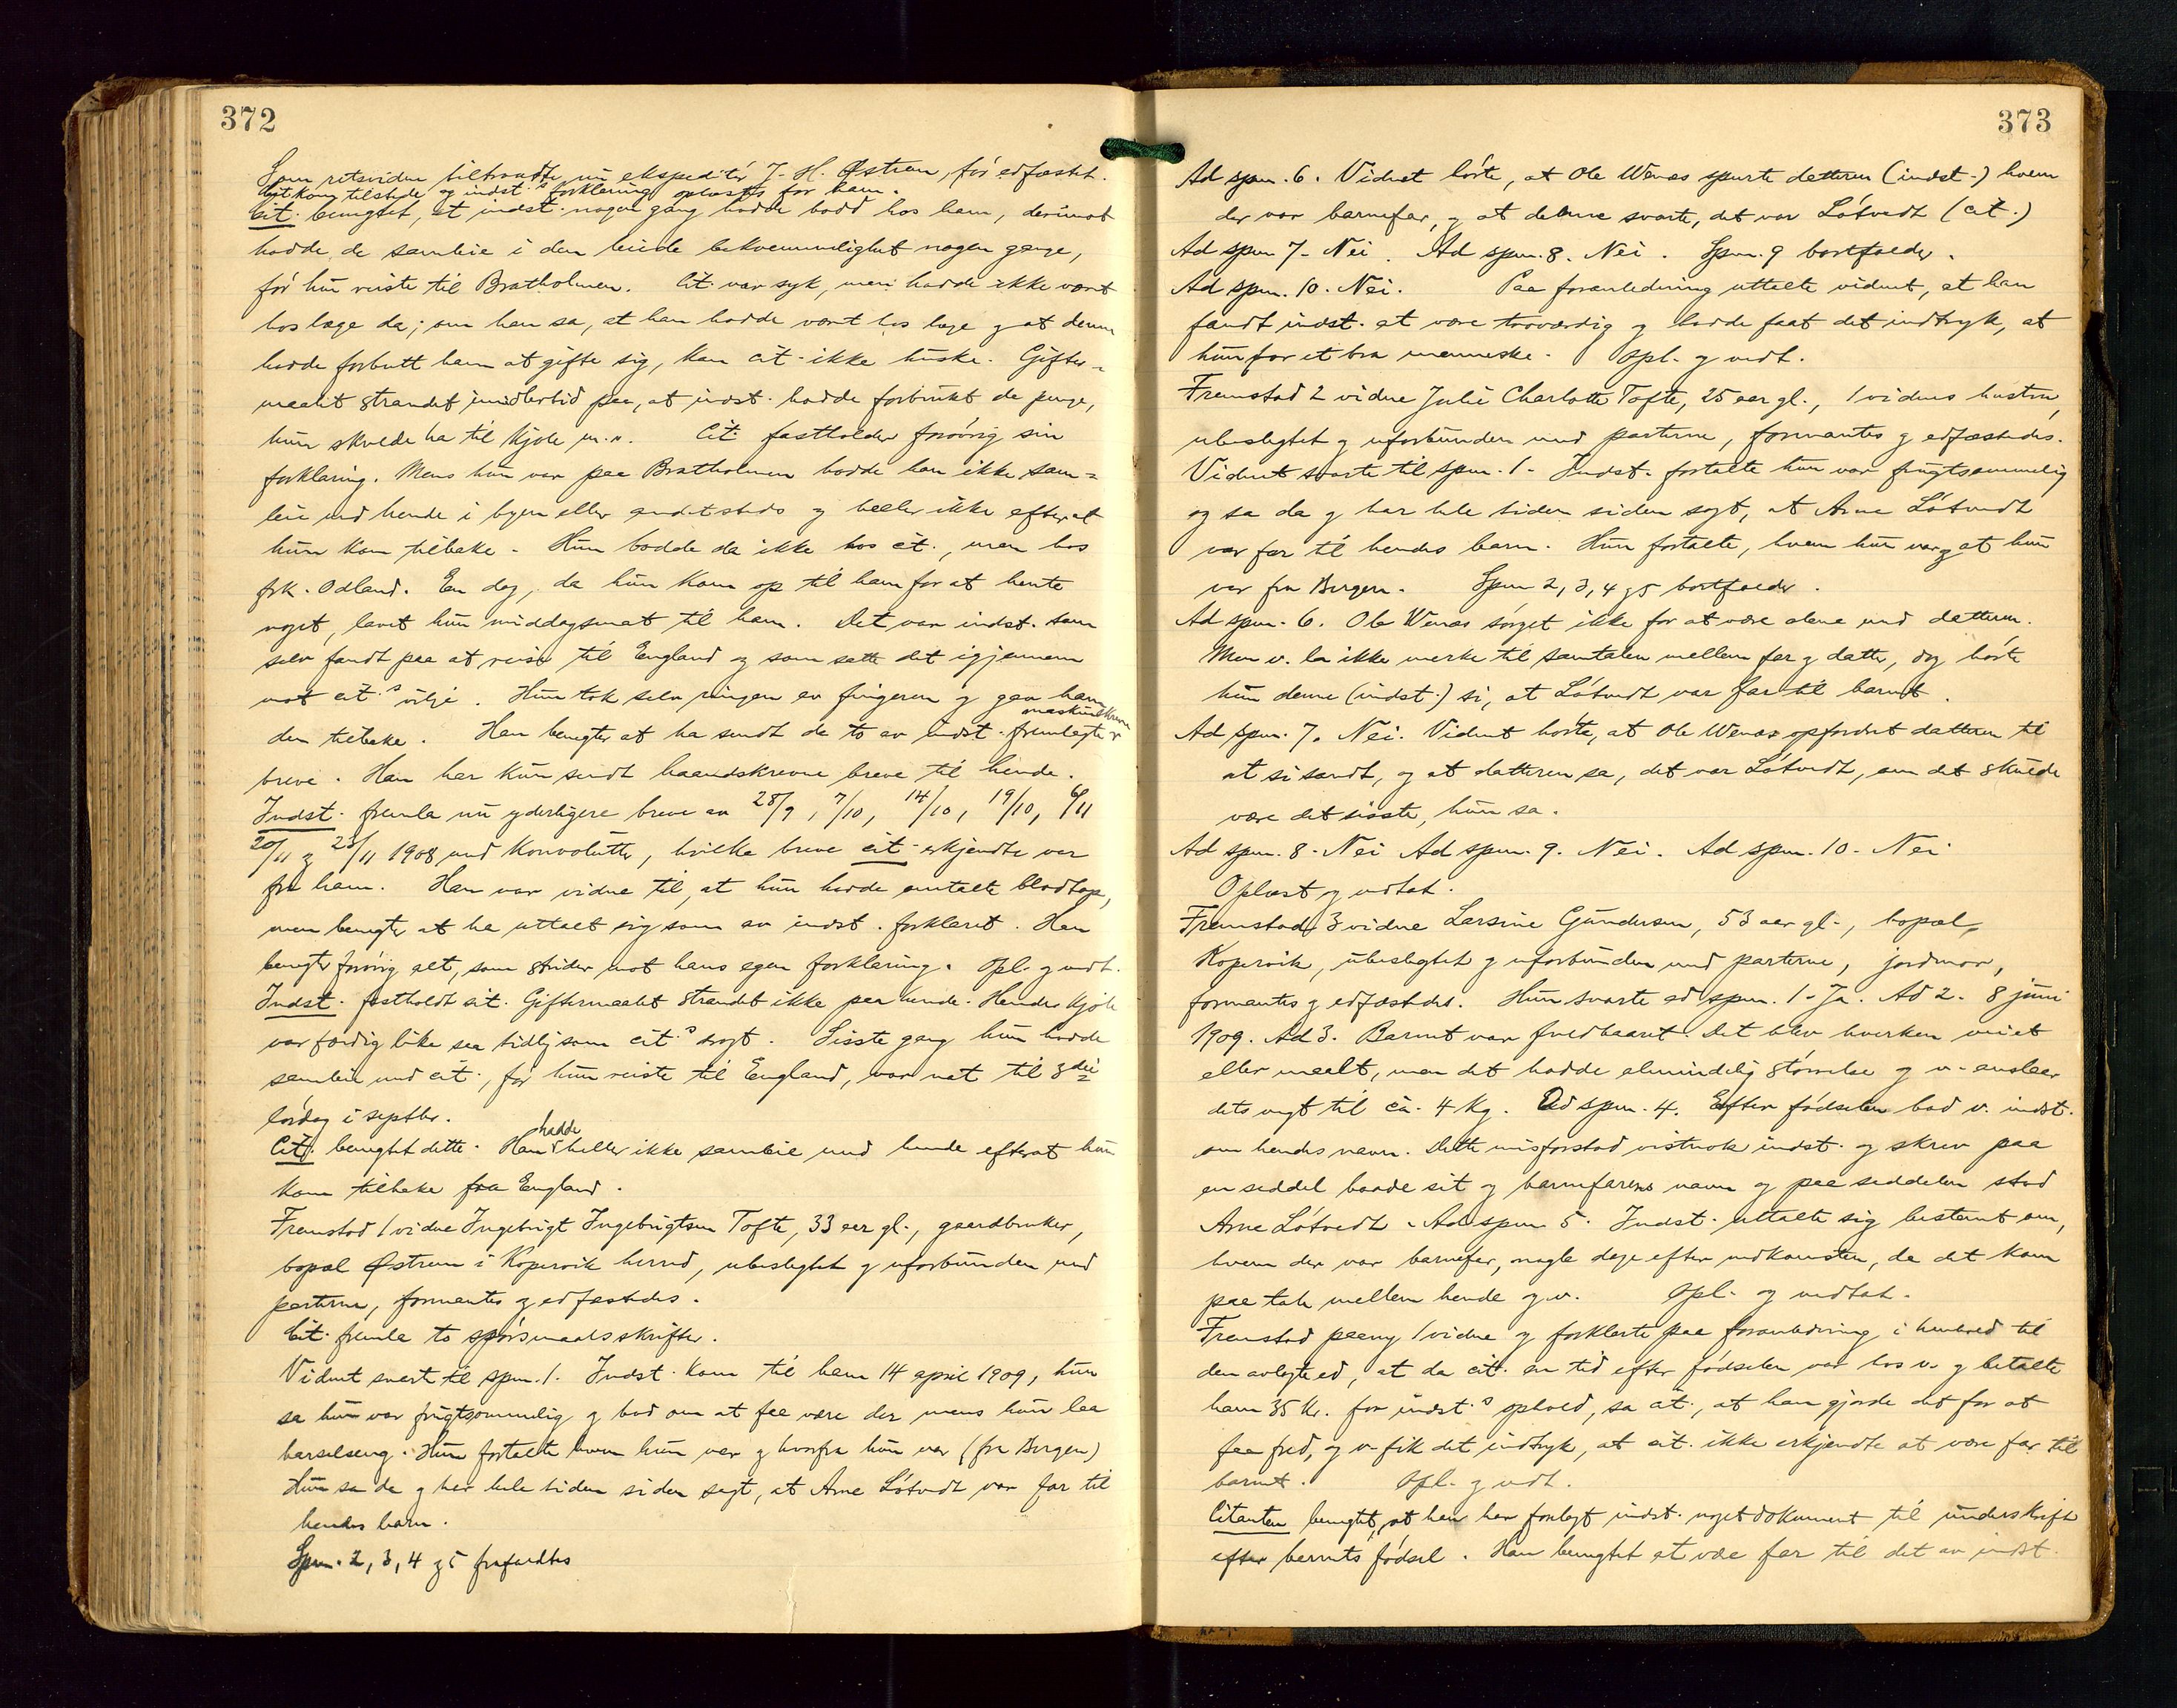 372
Som retsvidne tiltraadte nu ekspeditør J. H. Østrem, før edfæstet.
kom tilstede og indst.s forklaring oplæstes for ham.
Cit. benegtet, at indst. nogen gang hadde bodd hos ham, derimot
hadde de samleie i den leiede bekvemmelighet nogen gange,
før hun reiste til Bratholmen. Cit. var syk, men hadde ikke været
hos læge da; om han sa, at han hadde været hos læge og at denne
hadde forbutt ham at gifte sig, kan cit. ikke huske. Gifter-
maalet strandet imidlertid paa, at indst. hadde forbrukt de penge,
hun skulde ha til kjole m.v. Cit. fastholder forøvrig sin
forklaring. Mens hun var paa Bratholmen hadde han ikke sam=
leie med hende i byen eller andetsteds og heller ikke efterat
hun kom tilbake. Hun bodde da ikke hos cit., men hos
frk. Odland. En dag, da hun kom op til ham for at hente
noget, lavet hun middagsmat til ham. Det var indst. som
selv fandt paa at reise til England og som satte det igjennem
mot cit.s vilje. Hun tok selv ringen av fingeren og gav ham
den tilbake. Han benegter at ha sendt de to av indst. fremlagte maskinskrevne
breve. Han har kun sendt haandskrevne breve til hende.
Indst. fremla nu yderligere breve av 28/9, 7/10, 14/10, 19/10, 6/11
20/11 og 23/11 1908 med konvolutter, hvilke breve cit. erkjendte var
fra ham. Han var vidne til, at hun hadde omtalt blodtap,
men benegter at ha uttalt sig som av indst. forklaret. Han
benegter forøvrig alt, som strider mot hans egen forklaring. Opl. og vedt.
Indst. fastholdt sit. Giftermaalet strandet ikke paa hende. Hendes kjole
var færdig like saa tidlig som cit.s dragt. Sisste gang hun hadde
samleie med cit., før hun reiste til England, var nat til 3die
lørdag i septbr.
Cit. benegtet dette. Han hadde heller ikke samleie med hende efterat hun
kom tilbake fra England.
Fremstod 1 vidne Ingebrigt Ingebrigtsen Tofte, 33 aar gl., gaardbruker,
bopæl Østrem i Kopervik herred, ubeslegtet og uforbunden med
parterne, formantes og edfæstedes.
Cit. fremla to spørsmaalsskrifter.
Vidnet svart til spm. 1. Indst. kom til ham 14 april 1909, hun
sa hun var frugtsommelig og bad om at faa være der mens hun laa
barselseng. Hun fortalte hvem hun var og hvorfra hun var (fra Bergen)
Hun sa da og har hele tiden siden sagt, at Arne Løtvedt var far til
hendes barn.
Spm. 2, 3, 4 og 5 frafaldtes
373
Ad spm. 6. Vidnet hørte, at Ole Wenas spurte datteren (indst.) hvem
der var barnefar, og at denne svarte, det var Løtvedt (cit.)
Ad spm 7. Nei. Ad spm. 8. Nei. Spm. 9 bortfalder.
Ad spm. 10. Nei. Paa foranledning uttalte vidnet, at han
fandt indst. at være troværdig og hadde faat det indtryk, at
hun far et bra menneske. Opl. og vedt.
Fremstod 2 vidne Julie Charlotte Tofte, 25 aar gl., 1 vidnes hustru,
ubeslegtet og uforbunden med parterne, formantes og edfæstedes.
Vidnet svarte til spm. 1. Indst. fortalte hun var frugtsommelig
og sa da og har hele tiden siden sagt, at Arne Løtvedt
var far til hendes barn. Hun fortalte, hvem hun var og at hun
var fra Bergen. Spm 2, 3, 4 og 5 bortfalder.
Ad spm. 6. Ole Wenas sørget ikke for at være alene med datteren.
Men v. la ikke merke til samtalen mellem far og datter, dog hørte
hun denne (indst.) si, at Løtvedt var far til barnet.
Ad spm. 7. Nei. Vidnet hørte, at Ole Wenas opfordret datteren til
at si sandt, og at datteren sa, det var Løtvedt, om det skulde
være det sisste, hun sa.
Ad spm. 8. Nei Ad spm. 9. Nei. Ad spm. 10. Nei
Oplæst og vedtat.
Fremstod 3 vidne Larsine Gundersen, 53 aar gl., bopæl
Kopervik, ubeslegtet og uforbunden med parterne, jordmor,
formantes og edfæstedes. Hun svarte ad spm. 1. Ja. Ad 2. 8 juni
1909. Ad 3. Barnet var fuldbaaret. Det blev hverken veiet
eller maalt, men det hadde almindelig størrelse og v. anslaar
dets vegt til ca. 4 kg. Ad spm. 4. Efter fødselen bad v. indst.
om hendes navn. Dette misforstod vistnok indst. og skrev paa
en seddel baade sit og barnefarens navn og paa seddelen stod
Arne Løtvedt. Ad spm 5. Indst. uttalte sig bestemt om,
hvem der var barnefar, nogle dage efter nedkomsten, da det kom
paa tale mellem hende og v. Opl. og vedtat.
Fremstod paany 1 vidne og forklarte paa foranledning i henhold til
den avlagte ed, at da cit. en tid efter fødselen var hos v. og betalte
ham 35 kr. for indst.s ophold, sa cit., at han gjorde det for at
faa fred, og v. fik det indtryk, at cit. ikke erkjendte at være far til
barnet. Opl. og vedt.
Citanten benegtet, at han har forelagt indst. noget dokument til underskrift
efter barnets fødsel. Han benegtet at være far til det av indst.